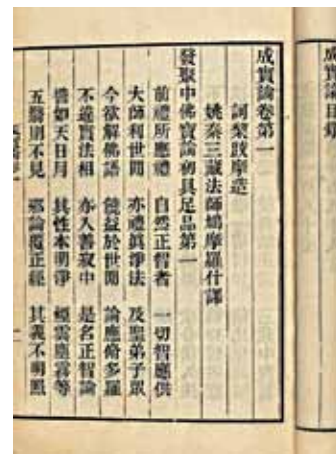 成實論目錄
成實論卷第一
訶梨跋摩造
姚秦三藏法師鳩摩羅什譯
發聚中佛寶論初具足品第一
前禮所應禮 自然正智者 一切智應供
大師利世間 亦禮眞淨法 及聖弟子眾
今欲解佛語 饒益於世間 論應脩多羅
不違實法相 亦入善寂中 是名正智論
譬如天日月 其性本明淨 煙雲塵霧等
五翳則不見 邪論覆正經 其義不明照